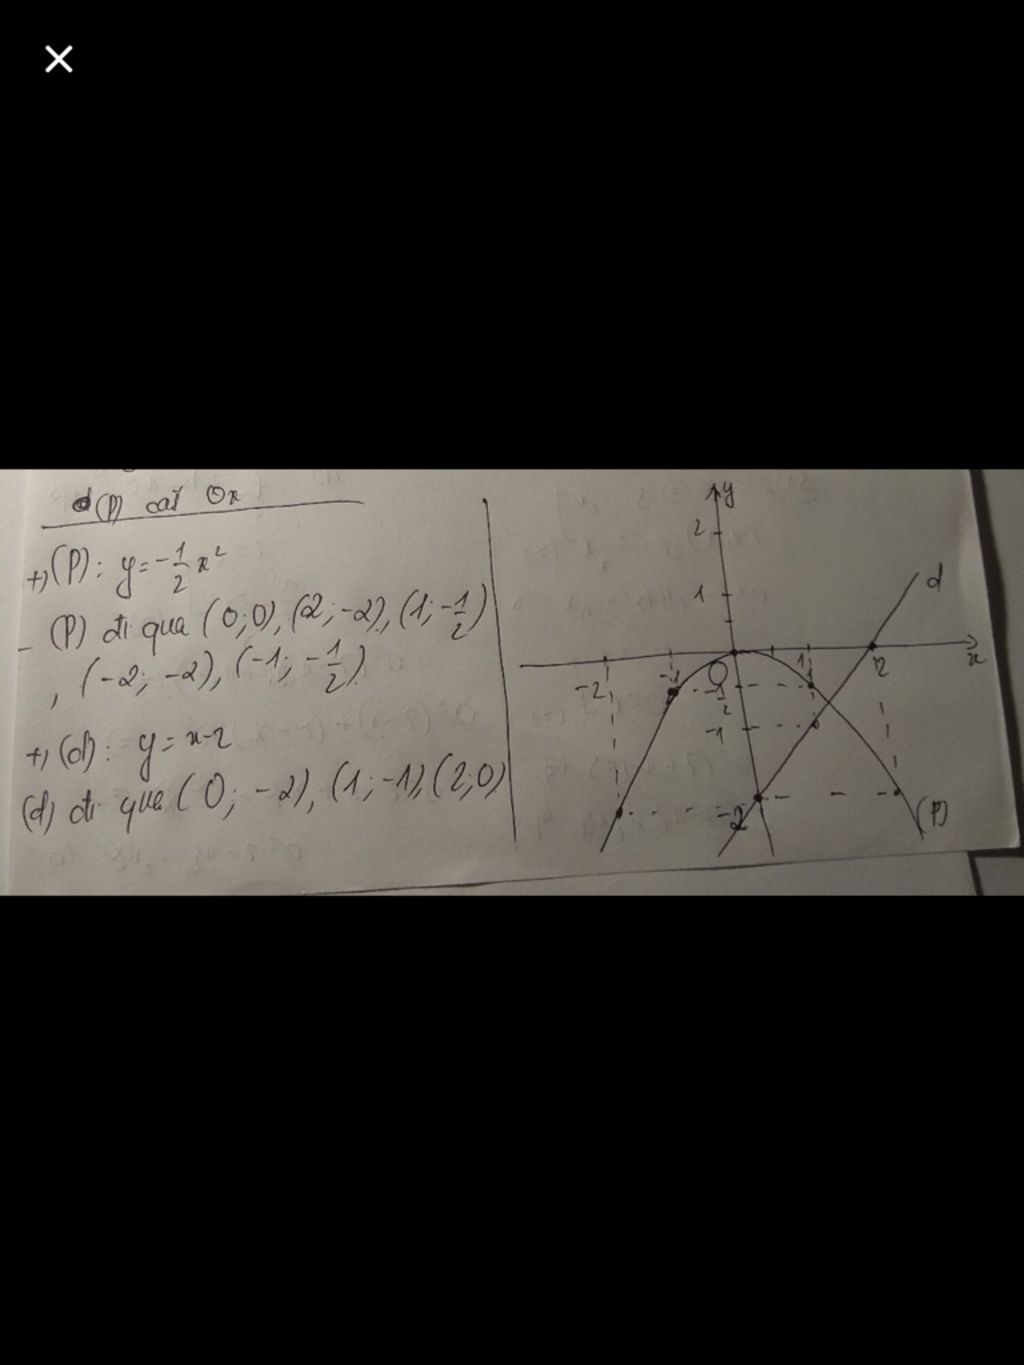 (P) cắt Ox
+, (P): y = -1/2 x²
- (P) đi qua (0;0), (2;-2), (1;-1/2)
, (-2; -2), (-1; -1/2)
+, (d): y = x-2
(d) đi qua (0; -2), (1; -1), (2;0)
y
2
1
d
-2
-1
O
1
2
x
-1/2
-1
-2
(P)